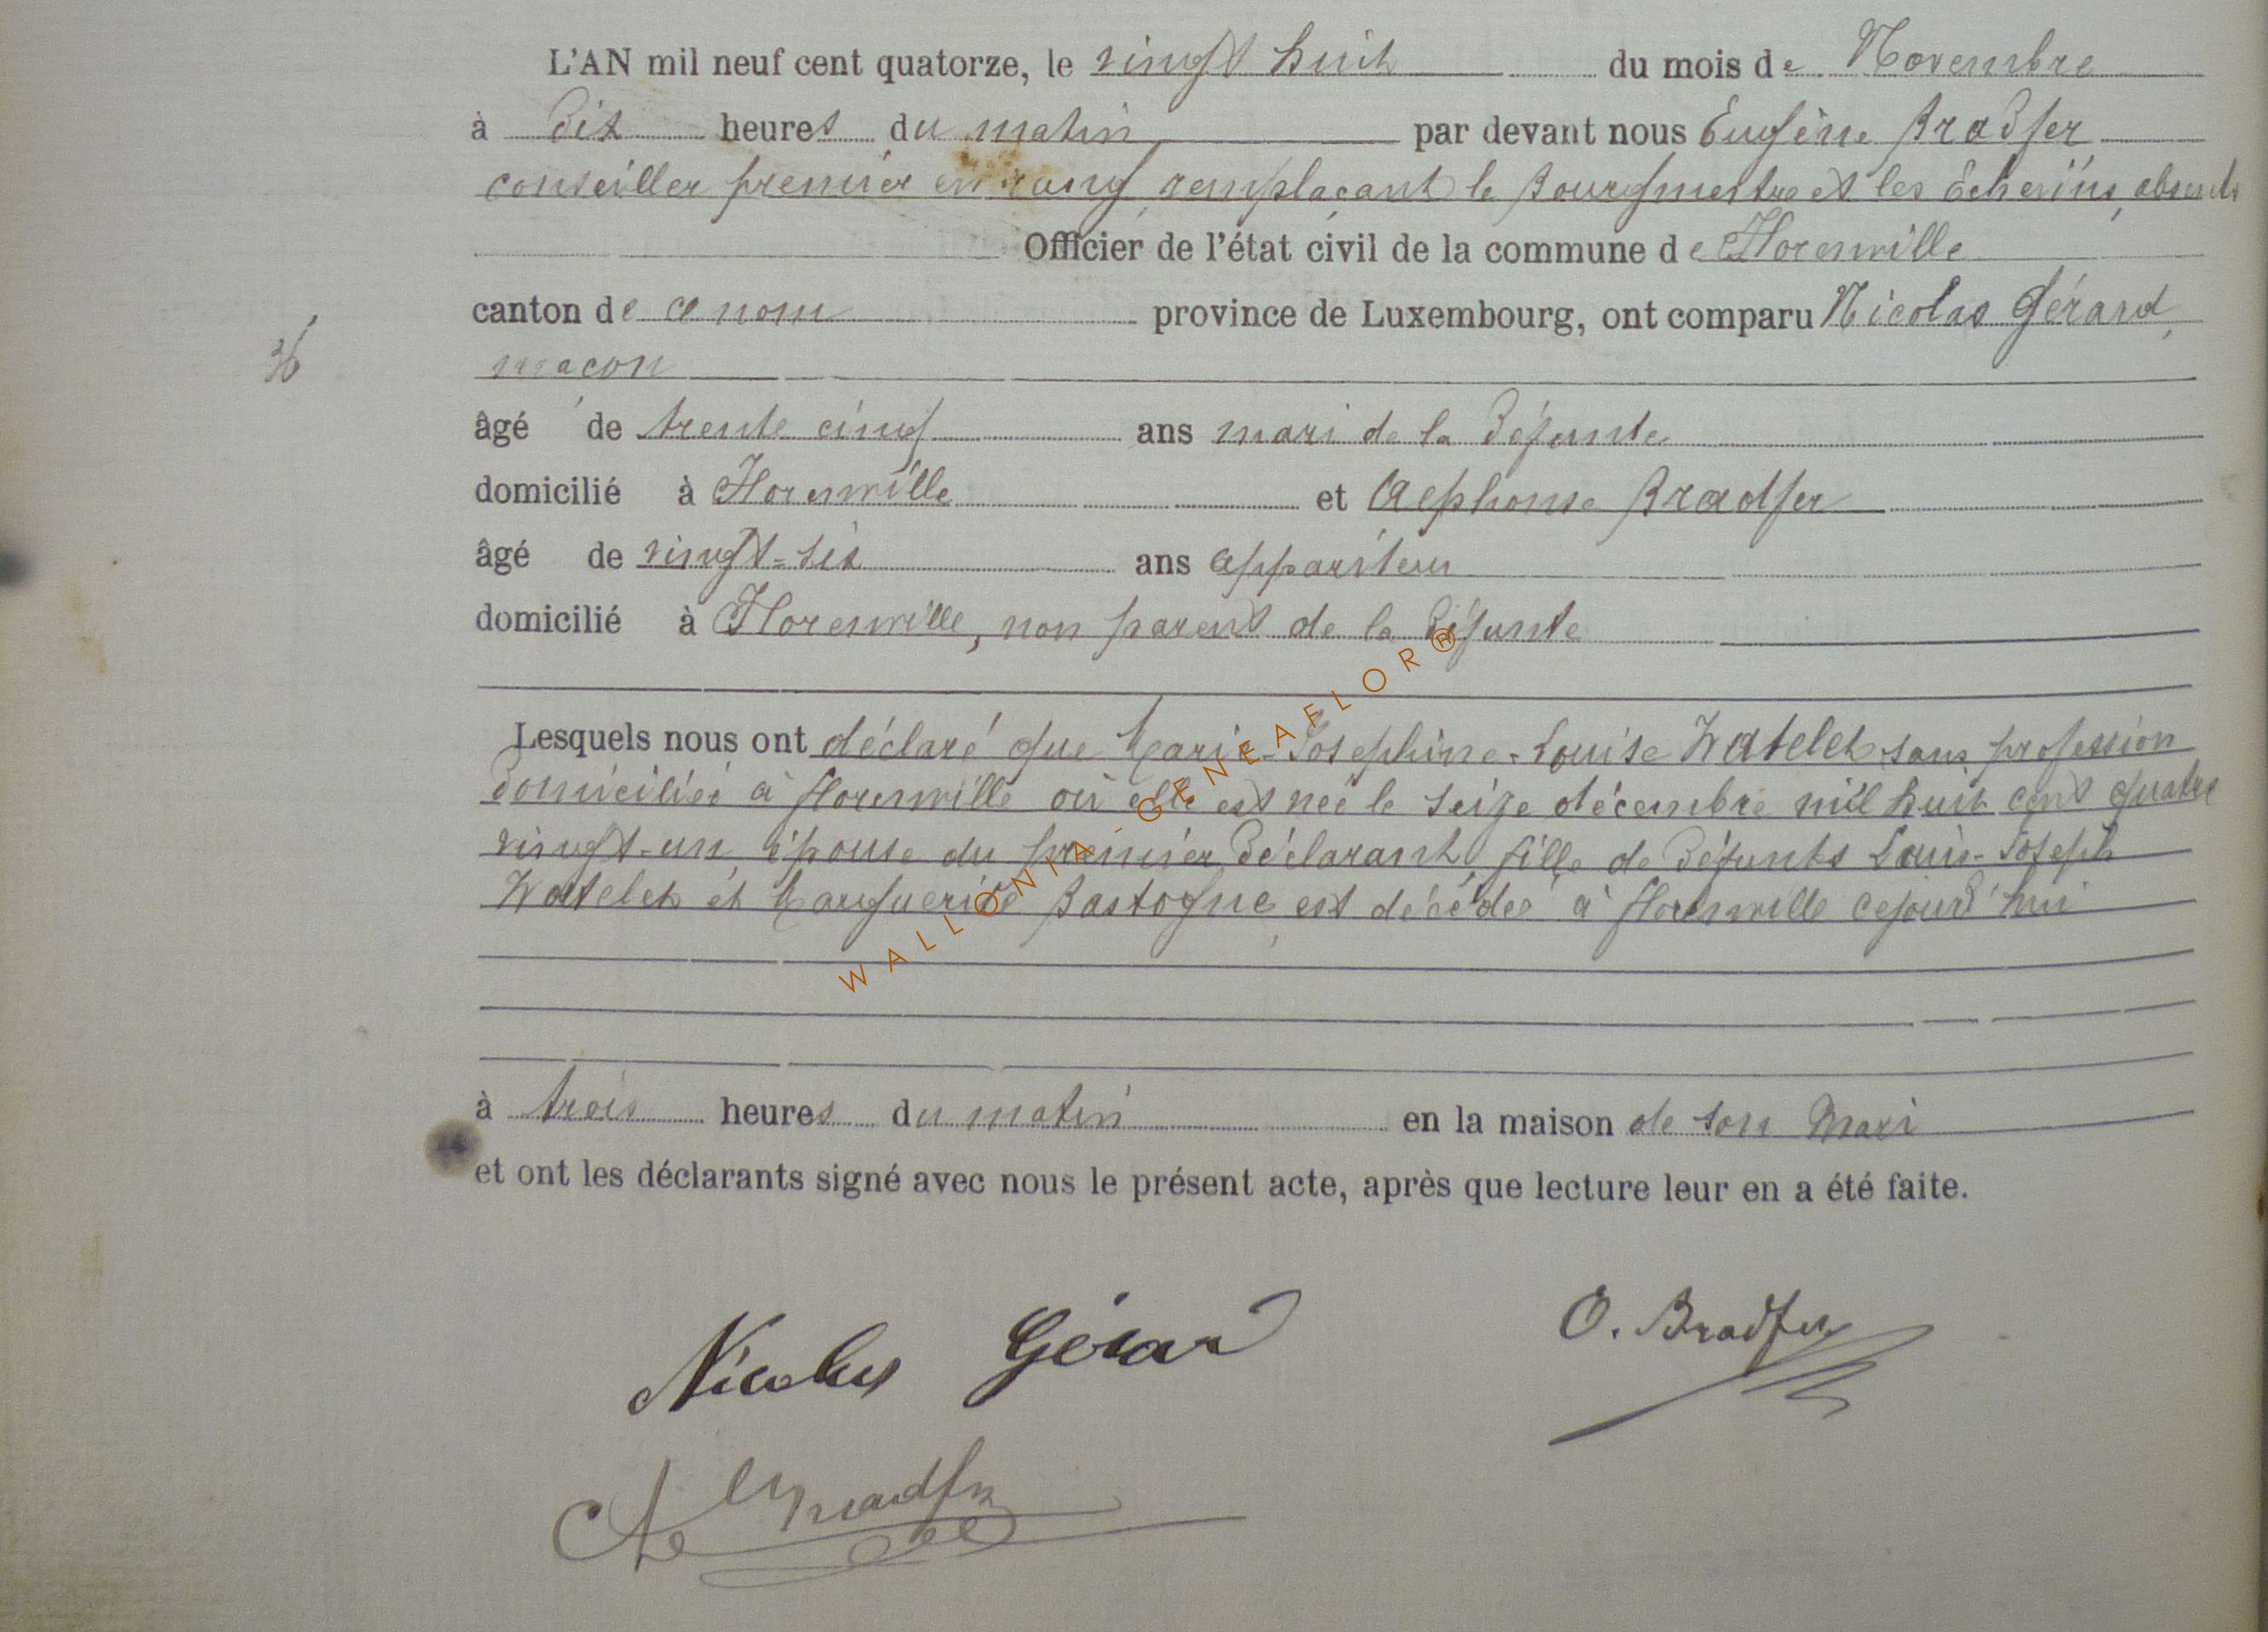 L'AN mil neuf cent quatorze, le vingt huit du mois de Novembre
à dix heures du matin par devant nous Eugène Bradfer
conseiller premier en rang remplaçant le Bourgmestre et les Echevins, absents
Officier de l'état civil de la commune de Florenville
canton de ce nom province de Luxembourg, ont comparu Nicolas Gérard,
36
maçon
âgé de trente cinq ans mari de la défunte
domicilié à Florenville et Alphonse Bradfer
âgé de vingt-six ans appariteur
domicilié à Florenville, non parent de la défunte
Lesquels nous ont déclaré que Marie-Joséphine-Louise Watelet sans profession
domiciliée à Florenville où elle est née le seize décembre mil huit cent quatre
vingt-un, épouse du premier déclarant, fille de défunts Louis-Joseph
Watelet et Marguerite Bastogne, est décédée à Florenville cejourd'hui
WALLONIA-GENEAFLOR®
à trois heures du matin en la maison de son mari
et ont les déclarants signé avec nous le présent acte, après que lecture leur en a été faite.
Nicolas Gérard
O. Bradfer
Al Bradfer